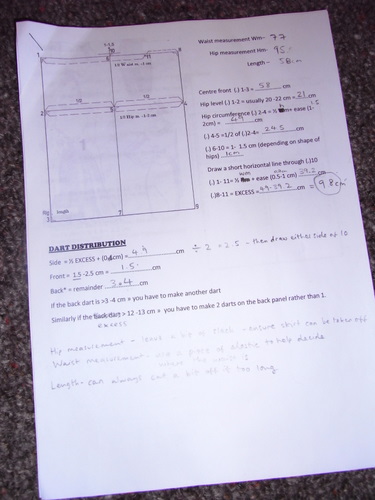 Waist measurement Wm- 77
Hip measurement Hm- 95
Length - 58cm
Centre front (.) 1-3 = 58 cm
Hip level (.) 1-2 = usually 20 -22 cm = 21 cm
Hip circumference (.) 2-4 = ½ hm + ease (1-
2cm) = 49 cm
1.5
(.) 4-5 =1/2 of (.)2-4= 24.5 cm
(.) 6-10 = 1- 1.5cm (depending on shape of
hips) 1cm
Draw a short horizontal line through (.)10
(.) 1- 11= ½ wm + ease (0.5-1 cm) 39.2 cm
(.)8-11 = EXCESS = 49-39.2 cm = 9.8cm
1/2 W ease m. -1 cm
1/2
1/2
1/2 Hip m. -1-2 cm
length
DART DISTRIBUTION
Side = ½ EXCESS + cm)= 4.9 cm ÷ 2 = 2.5 - then draw either side of 10
Front = 1.5 -2.5 cm = 1.5 cm
Back* = remainder 3.4 cm
If the back dart is >3 -4 cm you have to make another dart
Similarly if the back dart > 12 -13 cm you have to make 2 darts on the back panel rather than 1.
excess
Hip measurement - leave a bit of slack - ensure skirt can be taken off
Waist measurement - use a piece of elastic to help decide
where the waist is
Length - can always cut a bit off if too long